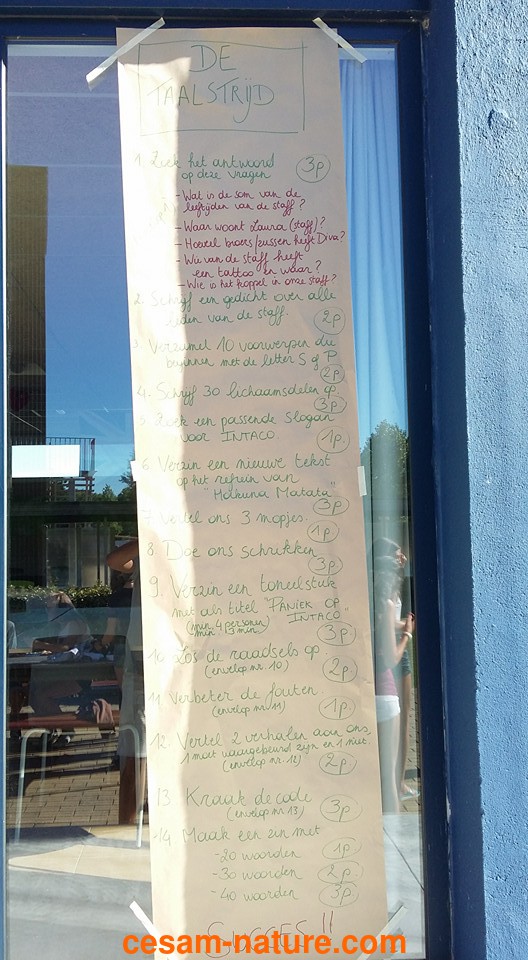 DE
TAALSTRIJD
1. Zoek het antwoord
op deze vragen 3p
- Wat is de som van de
leeftijden van de staff?
- Waar woont Laura (staff)?
- Hoeveel broers/zussen heeft Diva?
- Wie van de staff heeft
een tattoo en waar?
- Wie is het koppel in onze staff?
2. Schrijf een gedicht over alle
leden van de staff. 2p
3. Verzamel 10 voorwerpen die
beginnen met de letter S of P
2p
4. Schrijf 30 lichaamsdelen op.
3p.
5. Zoek een passende slogan
voor INTACO. 1p.
6. Verzin een nieuwe tekst
op het refrein van
"Hakuna Matata"
3p
7. Vertel ons 3 mopjes.
1p
8. Doe ons schrikken
3p.
9. Verzin een toneelstuk
met als titel "PANIEK OP
INTACO"
(min. 4 personen)
min. 13 min. 3p
10. Los de raadsels op.
(envelop nr. 10) 2p
11. Verbeter de fouten.
(envelop nr 11) 1p.
12. Vertel 2 verhalen aan ons,
1 moet waargebeurd zijn en 1 niet.
(envelop nr. 12) 2p
13. Kraak de code
(envelop nr 13) 3p.
14. Maak een zin met
- 20 woorden 1p
- 30 woorden 2p.
- 40 woorden 3p
SUCCES !!
cesam-nature.com